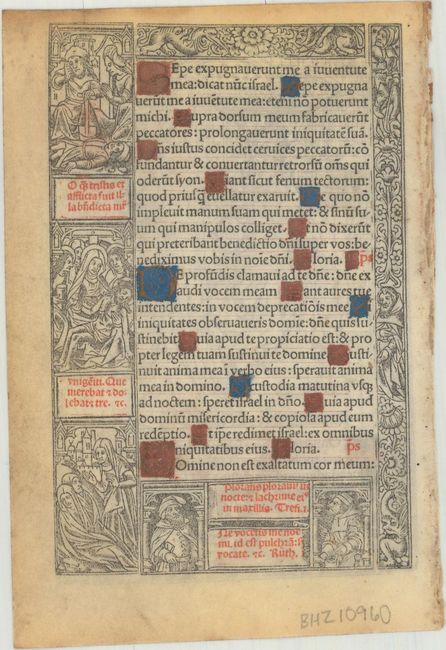 Sepe expugnaverunt me a iuventute
mea: dicat nūc israel. Sepe expugna
verūt me a iuvētute mea: eteni nō potuerunt
michi. Supra dorsum meum fabricaverūt
peccatores: prolongaverunt iniquitatē suā.
Dns iustus concidet cervices peccatorū: cō
fundantur & convertantur retrorsū omēs qui
oderūt syon. Fiant sicut fenum tectorum:
quod priusq̄ evellatur exaruit. De quo nō
implevit manum suam qui metet: & sinū su-
um qui manipulos colliget. Et nō dixerūt
qui preteribant benedictio dñi super vos: be-
nediximus vobis in noīe dñi. Gloria. ps
De profūdis clamavi ad te dñe: dñe ex
audi vocem meam Fiant aures tue
intendentes: in vocem deprecatiōis mee
Si iniquitates observaveris domīe: dñe quis su
stinebit Quia apud te propiciatio est: & pro
pter legem tuam sustinui te domine Susti-
nuit anima mea ī verbo eius: speravit anima
mea in domino. A custodia matutina vsq̄
ad noctem: speret israel in dño. Quia apud
dominū misericordia: & copiosa apud eum
redēptio. Et ipe redimet israel: ex omnibus
iniquitatibus eius. Gloria. ps
Domine non est exaltatum cor meum:
O q̄ tristis et
afflicta fuit il-
la bñdicta mr̄
vnigeñi. Que
merebat & do-
lebat: tre. &c.
Plorans ploravit in
nocte: & lachrime ei
in maxillis. Tren. i.
Ne vocetis me noe
mi. id est pulchrā: s
vocate. &c. Ruth. i
BHZ10960